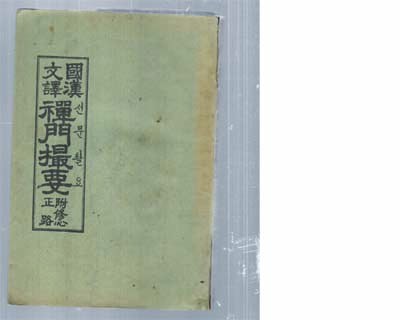 國漢
文譯
禪門撮要
선문촬요
附修心
正路